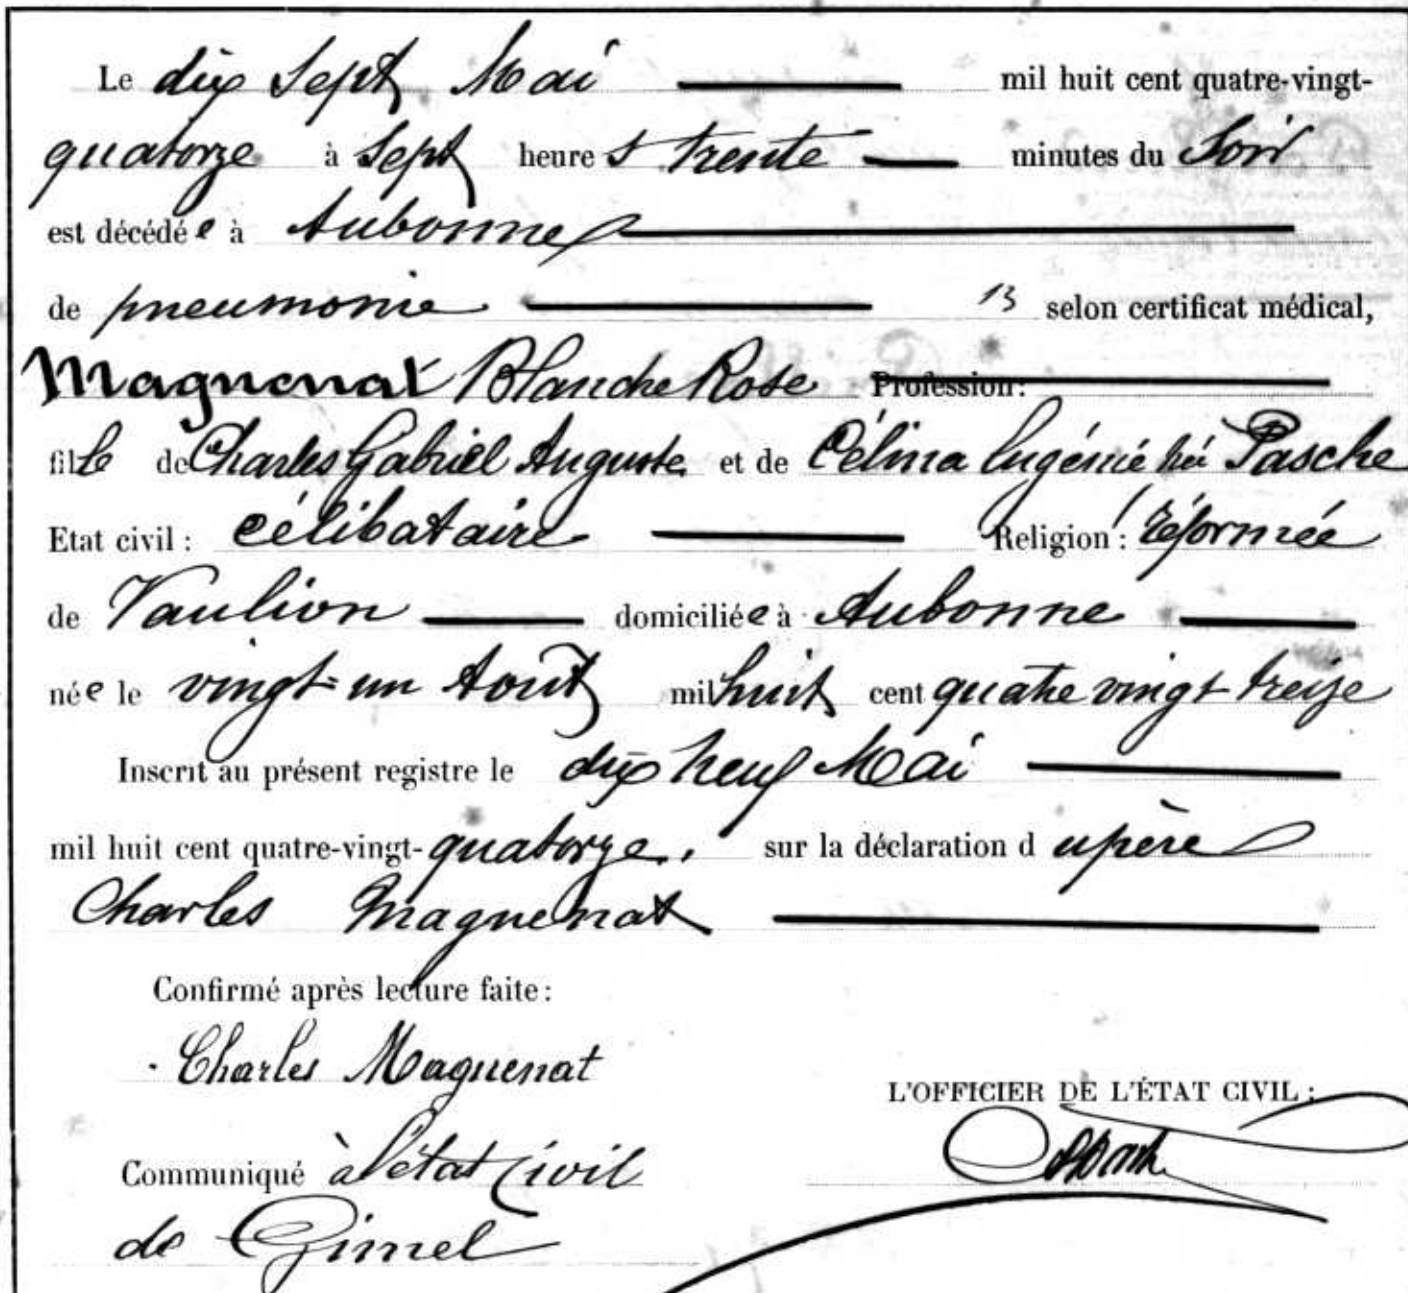 Le dix Sept Mai mil huit cent quatre-vingt-
quatorze à Sept heures trente minutes du Soir
est décédée à Aubonne
de pneumonie 13 selon certificat médical,
Magnenat Blanche Rose Profession:
fille de Charles Gabriel Auguste et de Célina Eugénie née Pasche
Etat civil : célibataire Religion : réformée
de Vaulion domiciliée à Aubonne
née le vingt-un Août mil huit cent quatre vingt treize
Inscrit au présent registre le dix neuf Mai
mil huit cent quatre-vingt-quatorze, sur la déclaration du père
Charles Magnenat
Confirmé après lecture faite :
Charles Magnenat
L'OFFICIER DE L'ÉTAT CIVIL :
Communiqué à l'état civil
de Gimel